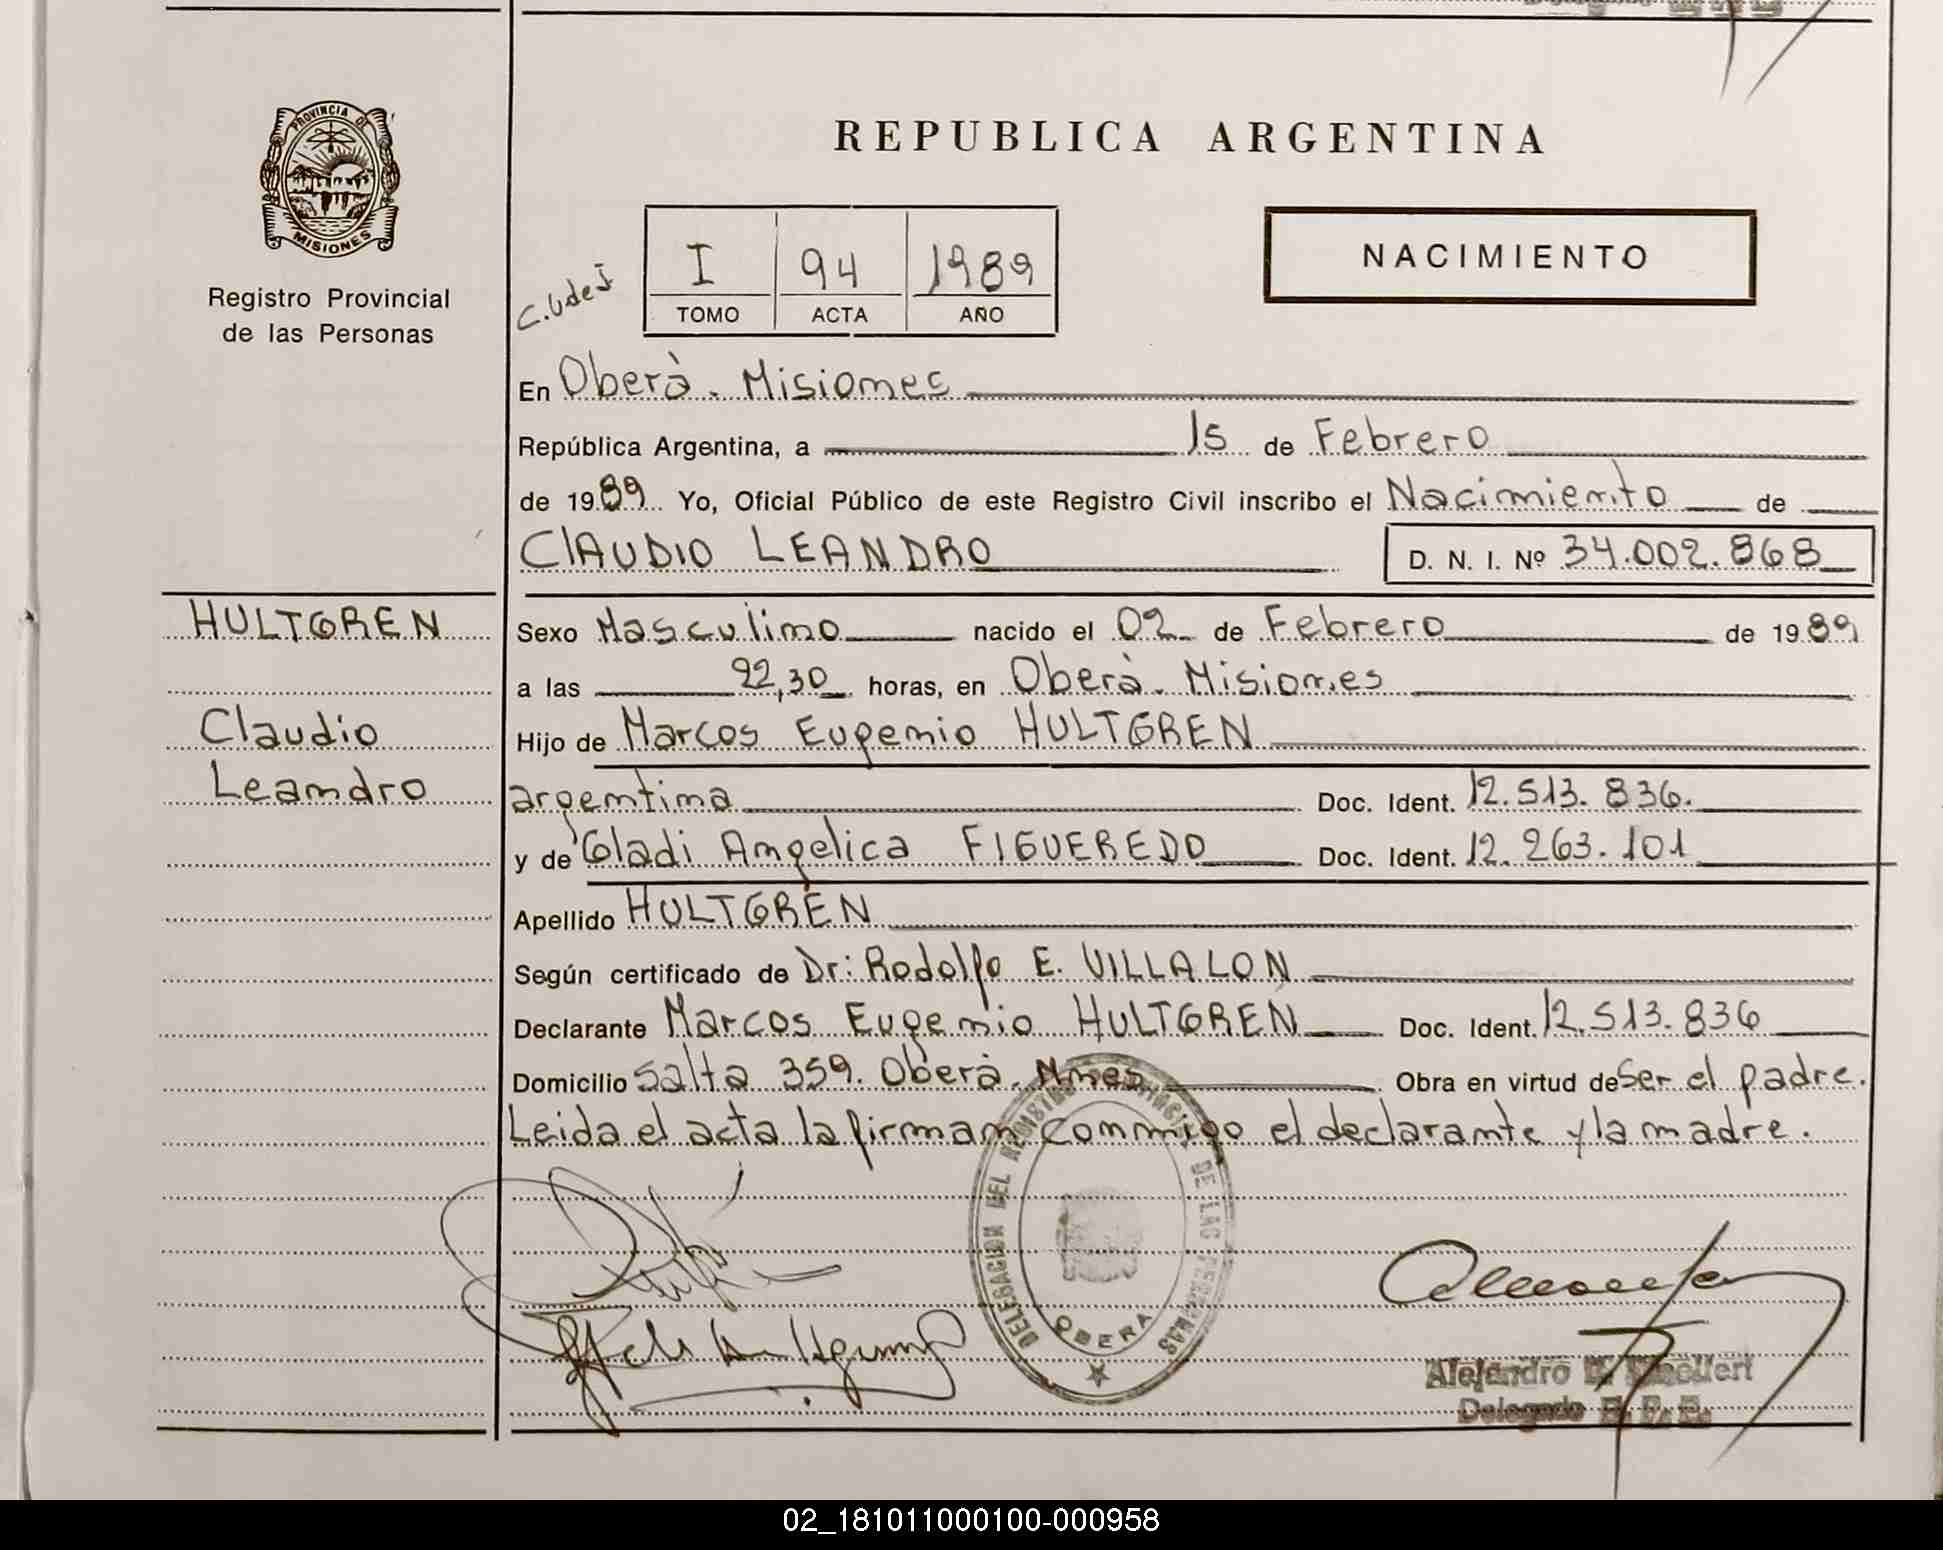 PROVINCIA DE
MISIONES
Registro Provincial
de las Personas
HULTGREN
Claudio
Leandro
REPUBLICA ARGENTINA
NACIMIENTO
I 94 1989
TOMO ACTA AÑO
En Oberà. Misiones
República Argentina, a 15 de Febrero
de 1989 Yo, Oficial Público de este Registro Civil inscribo el Nacimiento de
ClAUDIO LEANDRO D. N. I. Nº 34.002.868
Sexo Masculino nacido el 02 de Febrero de 1989
a las 22,30 horas, en Oberà. Misiones
Hijo de Marcos Eugenio HULTGREN
argentina Doc. Ident. 12.513.836.
y de Gladi Angelica FIGUEREDO Doc. Ident. 12.263.101
Apellido HULTGREN
Según certificado de Dr: Rodolfo E. VILLALON
Declarante Marcos Eugenio HULTGREN Doc. Ident. 12.513.836
Domicilio Salta 359. Oberà. Mnes Obra en virtud de Ser el padre.
Leida el acta la firman conmigo el declarante y la madre.
DELEGACION DEL REGISTRO PROVINCIAL DE LAS PERSONAS
OBERA
Alejandro
Delegado
02_181011000100-000958